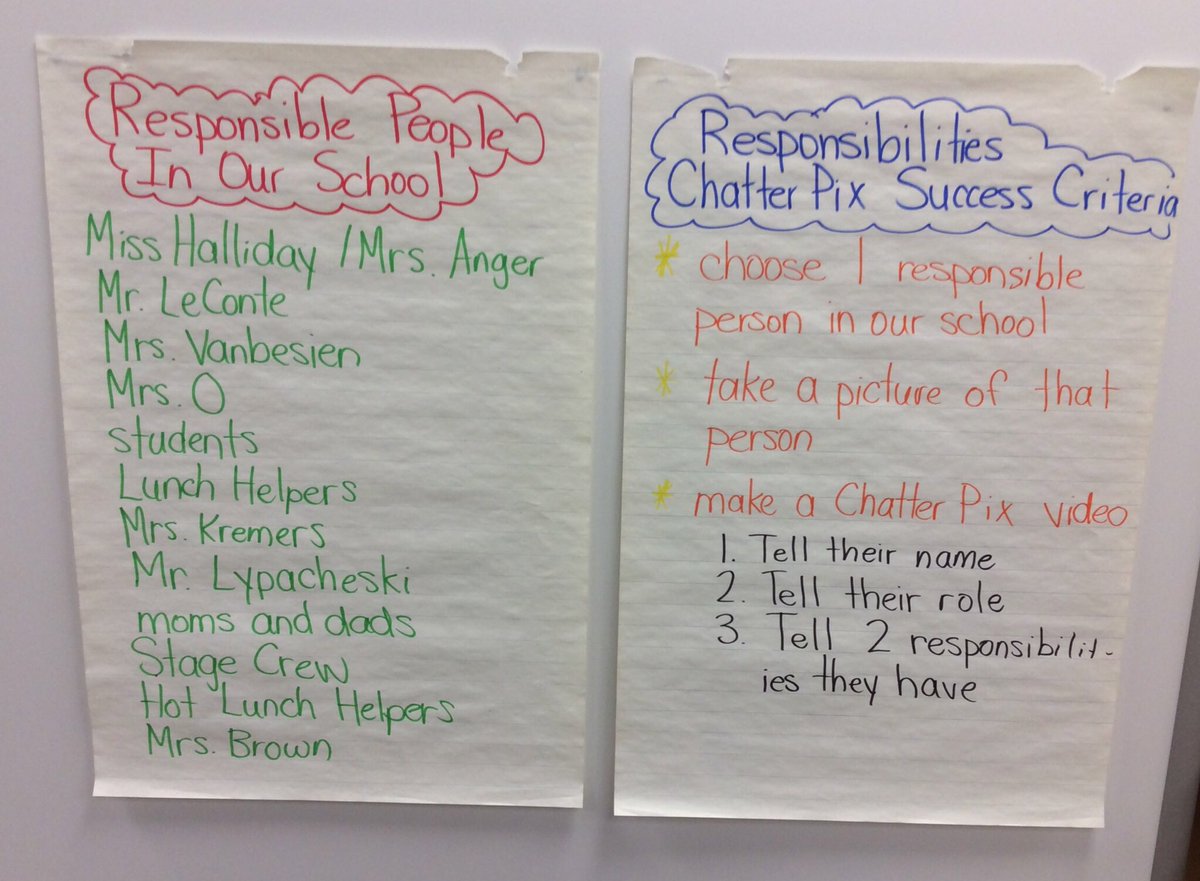 Responsible People
In Our School
Miss Halliday / Mrs. Anger
Mr. LeConte
Mrs. Vanbesien
Mrs. O
students
Lunch Helpers
Mrs. Kremers
Mr. Lypacheski
moms and dads
Stage Crew
Hot Lunch Helpers
Mrs. Brown
Responsibilities
Chatter Pix Success Criteria
* choose 1 responsible
person in our school
* take a picture of that
person
* make a Chatter Pix video
1. Tell their name
2. Tell their role
3. Tell 2 responsibilit-
ies they have